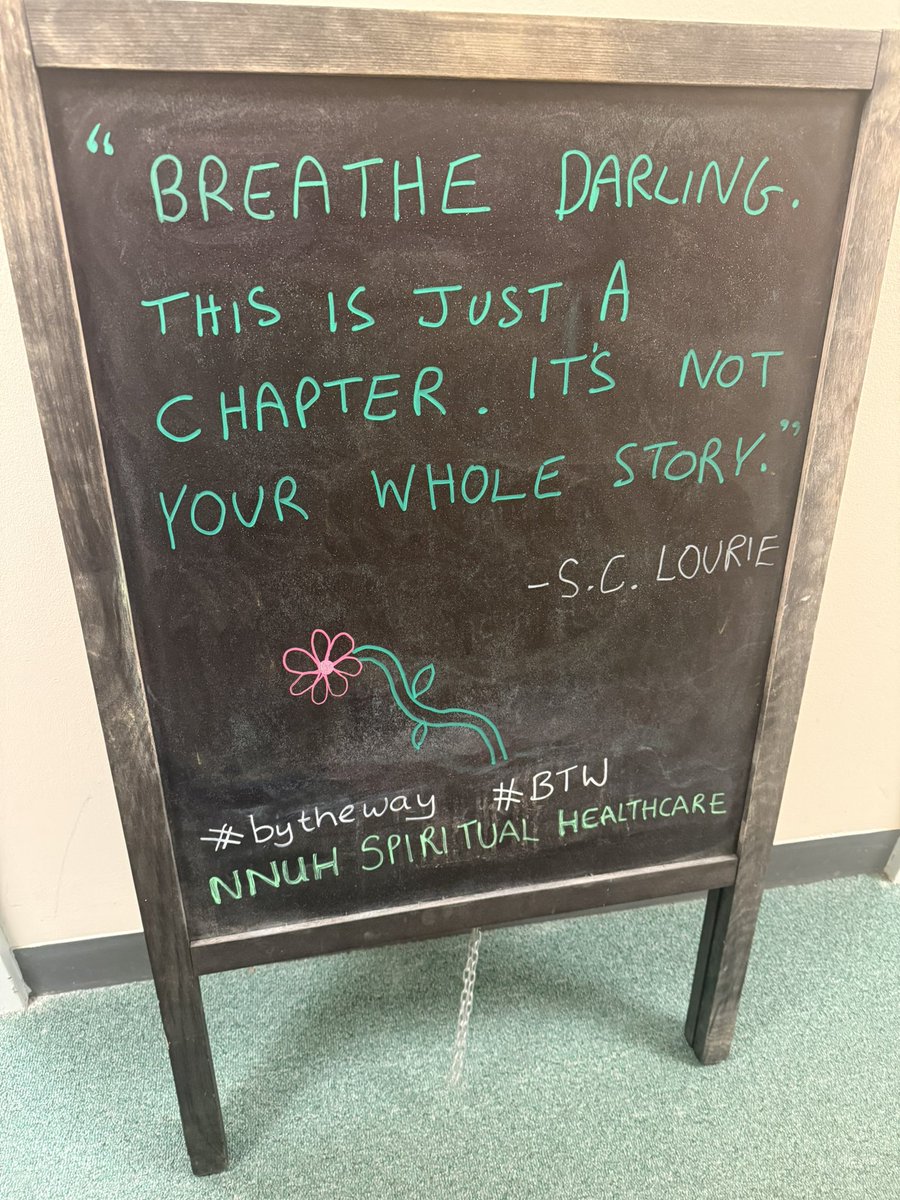 “ BREATHE DARLING.
THIS IS JUST A
CHAPTER. IT'S NOT
YOUR WHOLE STORY.”
-S.C. LOURIE
#bytheway #BTW
NNUH SPIRITUAL HEALTHCARE